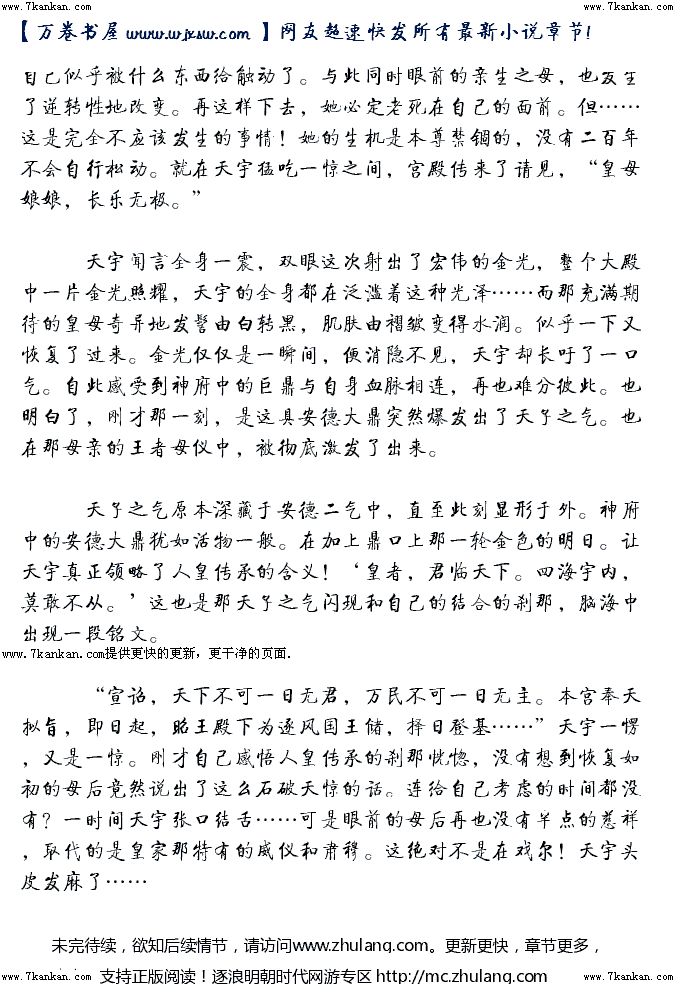 www.7kankan.com www.7kankan.com
【万卷书屋 www.wjxsw.com 】网友超速快发所有最新小说章节！
自己似乎被什么东西给触动了。与此同时眼前的亲生之母，也发生
了逆转性地改变。再这样下去，她必定老死在自己的面前。但……
这是完全不应该发生的事情！她的生机是本尊禁锢的，没有二百年
不会自行松动。就在天宇猛吃一惊之间，宫殿传来了请见，“皇母
娘娘，长乐无极。”
天宇闻言全身一震，双眼这次射出了宏伟的金光，整个大殿
中一片金光照耀，天宇的全身都在泛滥着这种光泽……而那充满期
待的皇母奇异地发髻由白转黑，肌肤由褶皱变得水润。似乎一下又
恢复了过来。金光仅仅是一瞬间，便消隐不见，天宇却长吁了一口
气。自此感受到神府中的巨鼎与自身血脉相连，再也难分彼此。也
明白了，刚才那一刻，是这具安德大鼎突然爆发出了天子之气。也
在那母亲的王者母仪中，被彻底激发了出来。
天子之气原本深藏于安德二气中，直至此刻显形于外。神府
中的安德大鼎犹如活物一般。在加上鼎口上那一轮金色的明日。让
天宇真正领略了人皇传承的含义！‘皇者，君临天下。四海宇内，
莫敢不从。’这也是那天子之气闪现和自己的结合的刹那，脑海中
出现一段铭文。
www.7kankan.com提供更快的更新，更干净的页面.
“宣诏，天下不可一日无君，万民不可一日无主。本宫奉天
拟旨，即日起，昭王殿下为逐风国王储，择日登基……”天宇一愣
，又是一惊。刚才自己感悟人皇传承的刹那恍惚，没有想到恢复如
初的母后竟然说出了这么石破天惊的话。连给自己考虑的时间都没
有？一时间天宇张口结舌……可是眼前的母后再也没有半点的慈祥
，取代的是皇家那特有的威仪和肃穆。这绝对不是在戏尔！天宇头
皮发麻了……
未完待续，欲知后续情节，请访问www.zhulang.com。更新更快，章节更多，
www.7kankan.com 支持正版阅读！逐浪明朝时代网游专区 http://mc.zhulang.com www.7kankan.com